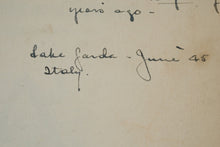 years ago -
Lake Garda - June 45
Italy.